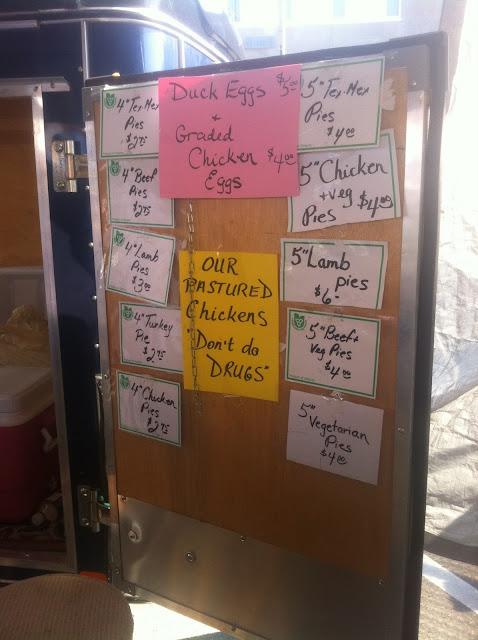 4" Tex-Mex
Pies
$2.75
4" Beef
Pies
$2.75
4" Lamb
Pies
$3.00
4" Turkey
Pie
$2.75
4" Chicken
Pies
$2.75
Duck Eggs $5.00
+
Graded
Chicken $4.00
Eggs
OUR
PASTURED
Chickens
"Don't do
DRUGS"
5" Tex-Mex
Pies
$4.00
5" Chicken
+ Veg $4.00
Pies
5" Lamb
pies
$6-
5" Beef +
Veg Pies
$4.00
5"
Vegetarian
Pies
$4.00